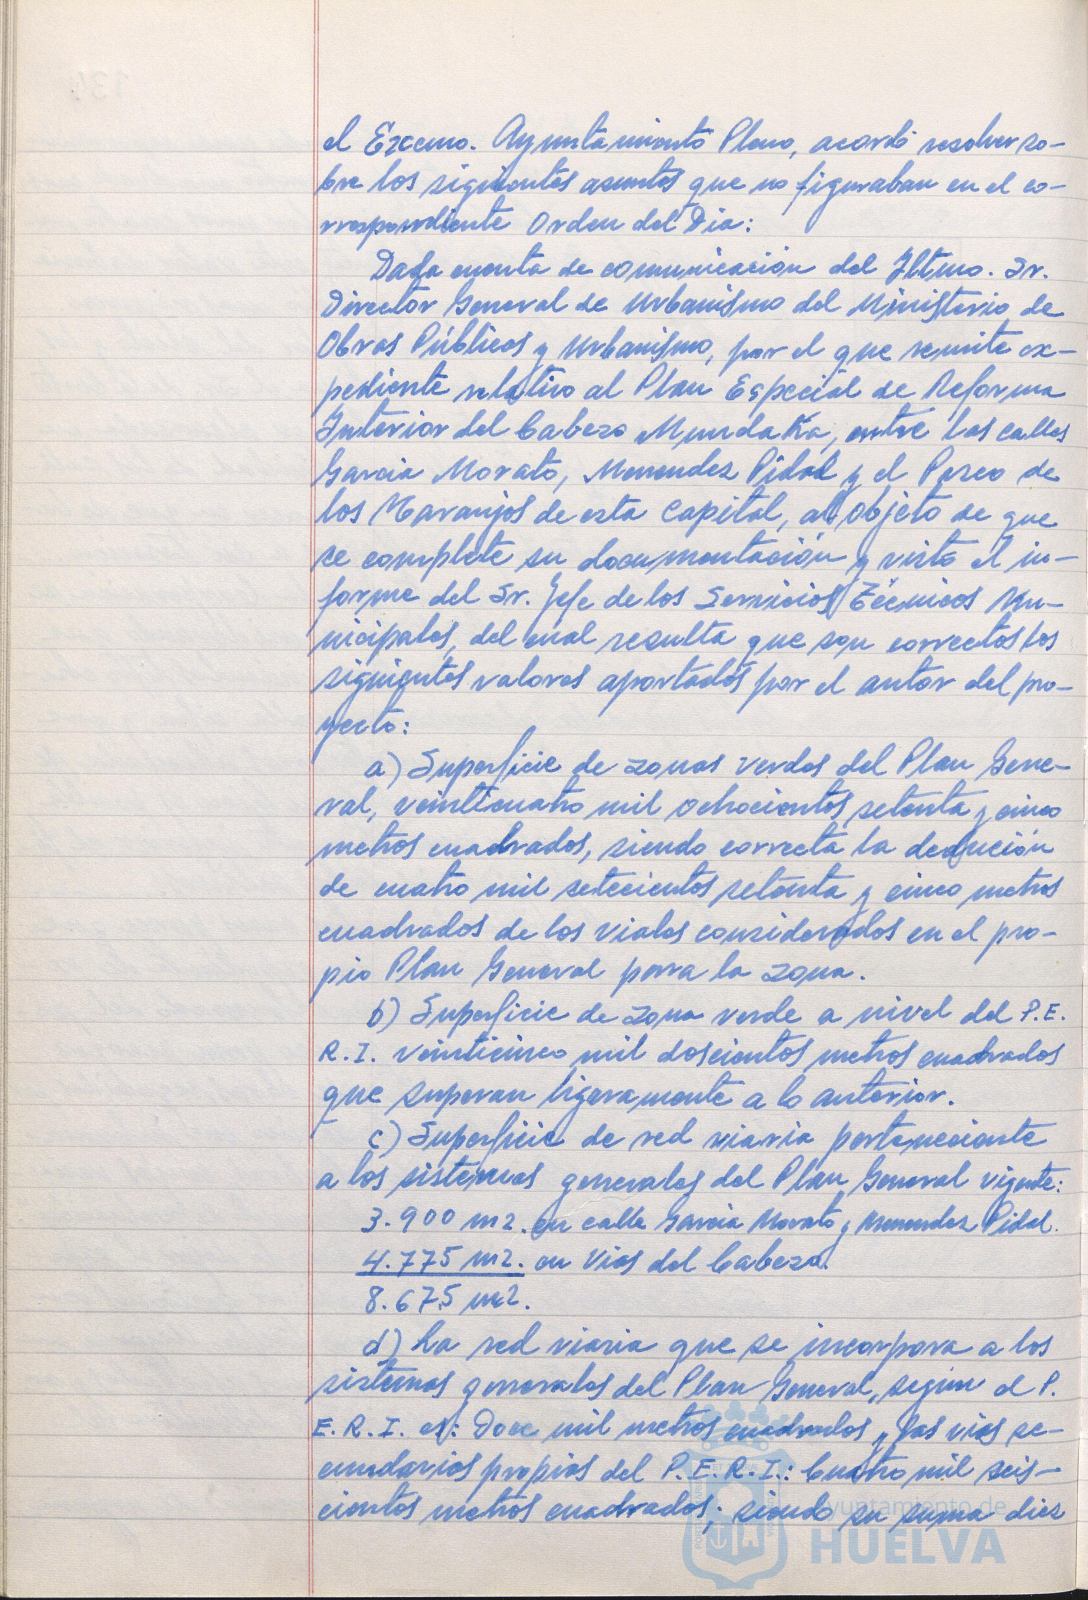 el Excmo. Ayuntamiento Pleno, acordó resolver so-
bre los siguientes asuntos que no figuraban en el co-
rrespondiente Orden del Dia:
Dada cuenta de comunicación del Iltmo. Sr.
Director General de Urbanismo del Ministerio de
Obras Públicas y Urbanismo, por el que remite ex-
pediente relativo al Plan Especial de Reforma
Interior del Cabezo Mundaka, entre las calles
Garcia Morato, Menendez Pidal y el Paseo de
los Naranjos de esta Capital, al objeto de que
se complete su documentación y visto el in-
forme del Sr. Jefe de los Servicios Técnicos Mu-
nicipales, del cual resulta que son correctos los
siguientes valores aportados por el autor del pro-
yecto:
a) Superficie de zonas verdes del Plan Gene-
ral, veinticuatro mil ochocientos setenta y cinco
metros cuadrados, siendo correcta la deducción
de cuatro mil setecientos setenta y cinco metros
cuadrados de los viales considerados en el pro-
pio Plan General para la zona.
b) Superficie de zona verde a nivel del P.E.
R.I. veinticinco mil doscientos metros cuadrados
que superan ligeramente a lo anterior.
c) Superficie de red viaria perteneciente
a los sistemas generales del Plan General vigente:
3.900 m2. en calle Garcia Morato y Menendez Pidal.
4.775 m2. en Vias del Cabezo.
8.675 m2.
d) La red viaria que se incorpora a los
sistemas generales del Plan General, segun el P.
E.R.I. es: Doce mil metros cuadrados y las vias se-
cundarias propias del P.E.R.I.: Cuatro mil seis-
cientos metros cuadrados; siendo su suma diez
Ayuntamiento de
HUELVA